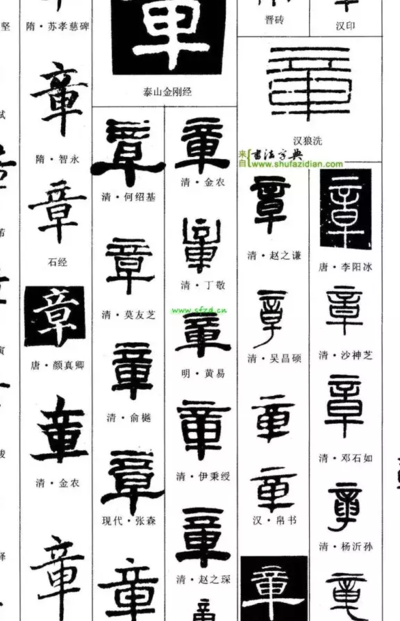 隋·苏孝慈碑
章
隋·智永
章
石经
章
唐·颜真卿
章
清·金农
章
章
泰山金刚经
章
清·何绍基
章
清·莫友芝
章
清·俞樾
章
现代·张森
章
章
清·金农
章
清·丁敬
www.sfzd.cn
章
明·黄易
章
清·伊秉绶
章
清·赵之琛
章
晋砖
汉印
章
汉狼洗
来自 书法字典
www.shufazidian.com
章
清·赵之谦
章
清·吴昌硕
章
章
汉·帛书
章
章
唐·李阳冰
章
清·沙神芝
章
清·邓石如
章
清·杨沂孙
章